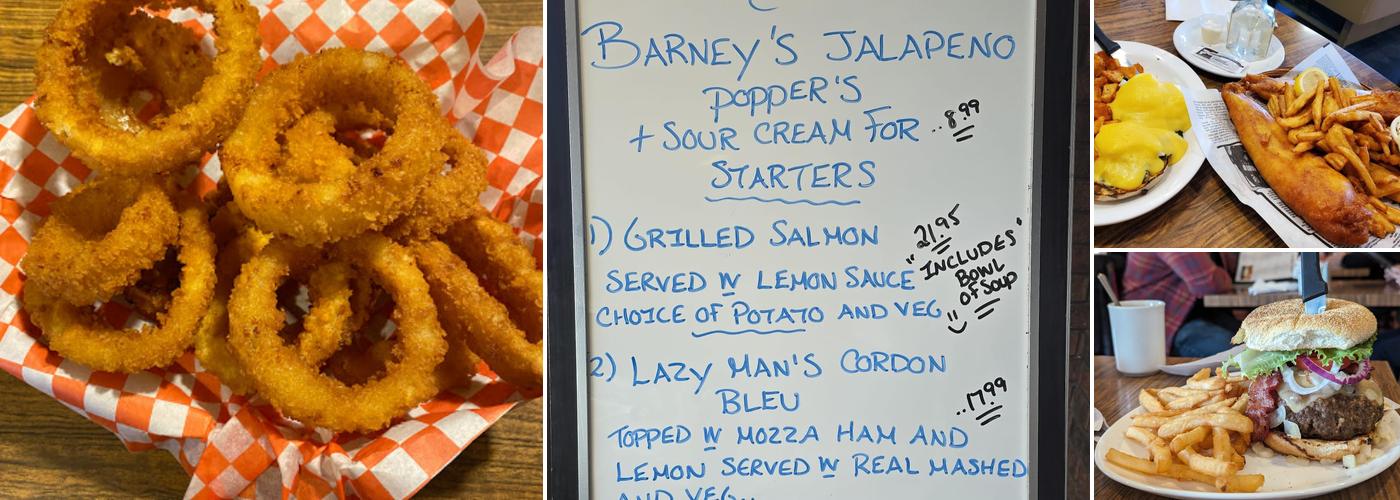 BARNEY'S JALAPENO
POPPER'S
+ SOUR CREAM FOR ..8.99
STARTERS
1) GRILLED SALMON 21.95
SERVED W LEMON SAUCE
CHOICE OF POTATO AND VEG
"INCLUDES"
BOWL
OF SOUP
2) LAZY MAN'S CORDON
BLEU ..17.99
TOPPED W MOZZA HAM AND
LEMON SERVED W REAL MASHED
AND VEG..